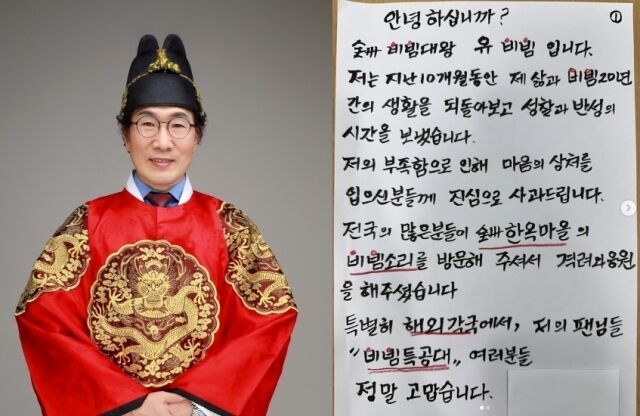 안녕 하십니까? ①
全州 비빔대왕 유 비빔 입니다.
저는 지난10개월동안 제 삶과 비빔20년
간의 생활을 되돌아보고 성찰과 반성의
시간을 보냈습니다.
저의 부족함으로 인해 마음의 상처를
입으신분들께 진심으로 사과드립니다.
전국의 많은분들이 全州한옥마을의
비빔소리를 방문해 주셔서 격려과응원
을 해주셨습니다
특별히 해외각국에서, 저의 팬님들
"비빔특공대„ 여러분들
정말 고맙습니다.